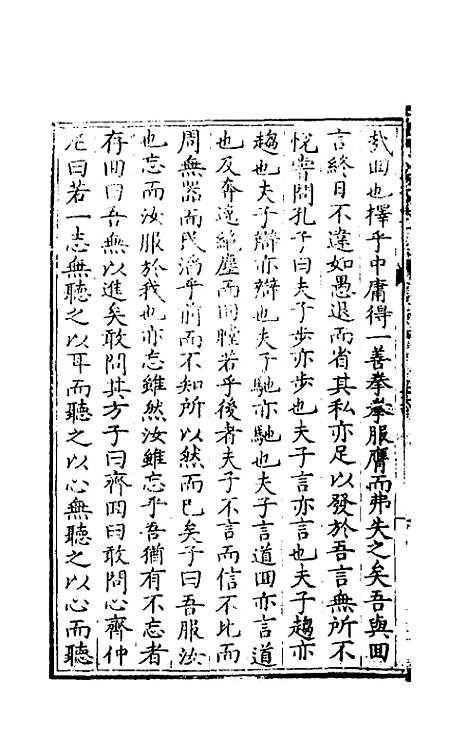 哉囬也擇乎中庸得一善拳拳服膺而弗失之矣吾與囬
言終日不違如愚退而省其私亦足以發於吾言無所不
悅嘗問孔子曰夫子步亦步也夫子言亦言也夫子趨亦
趨也夫子辯亦辯也夫子馳亦馳也夫子言道囬亦言道
也及奔逸絶塵而囬瞠若乎後者夫子不言而信不比而
周無器而民滔乎前而不知所以然而已矣子曰吾服汝
也忘而汝服於我也亦忘雖然汝雖忘乎吾猶有不忘者
存囬曰吾無以進矣敢問其方子曰齊囬曰敢問心齊仲
尼曰若一志無聽之以耳而聽之以心無聽之以心而聽